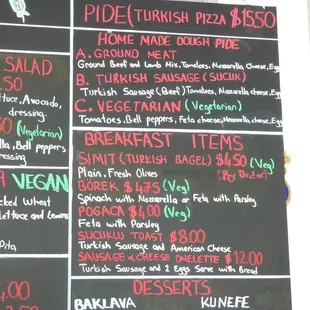 PIDE(TURKISH PIZZA $15.50
HOME MADE DOUGH PIDE
A. GROUND MEAT
Ground Beef and Lamb Mix, Tomatoes, Mozzarella Cheese, Egg
B. TURKISH SAUSAGE (SUCUK)
Turkish Sausage (Beef) Tomatoes, Mozzarella cheese, Egg
C. VEGETARIAN (Vegetarian)
Tomatoes, Bell peppers, Feta cheese, Mozzarella cheese, Egg
BREAKFAST ITEMS
SIMIT (TURKISH BAGEL) $4.50 (Veg)
Plain, Fresh Olives
BÖREK $4.75 (Veg)
Spinach with Mozzarella or Feta with Parsley
POGACA $4.00 (Veg)
Feta with Parsley
SUCUKLU TOAST $8.00
Turkish Sausage and American Cheese
SAUSAGE & CHEESE OMELETTE $12.00
Turkish Sausage and 2 Eggs Serve with Bread
DESSERTS
BAKLAVA KUNEFE
SALAD
.50
Avocado,
dressing
(Vegetarian)
Bell peppers
dressing
VEGAN
Wheat
Lettuce and Lemons
Pita
.00